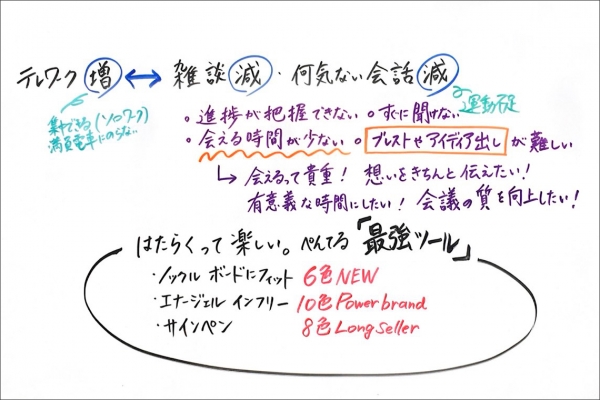 テレワーク 増 ↔ 雑談 減・何気ない会話 減
集中できる(ソロワーク)
満員電車にのらない
運動不足
。進捗が把握できない 。すぐに聞けない
・会える時間が少ない 。ブレストやアイディア出し が難しい
↳ 会えるって貴重! 想いをきちんと伝えたい!
有意義な時間にしたい! 会議の質を向上したい!
はたらくって楽しい。ぺんてる「最強ツール」
・ノックル ボードにフィット 6色NEW
・エナージェル インフリー 10色Power brand
・サインペン 8色Long seller